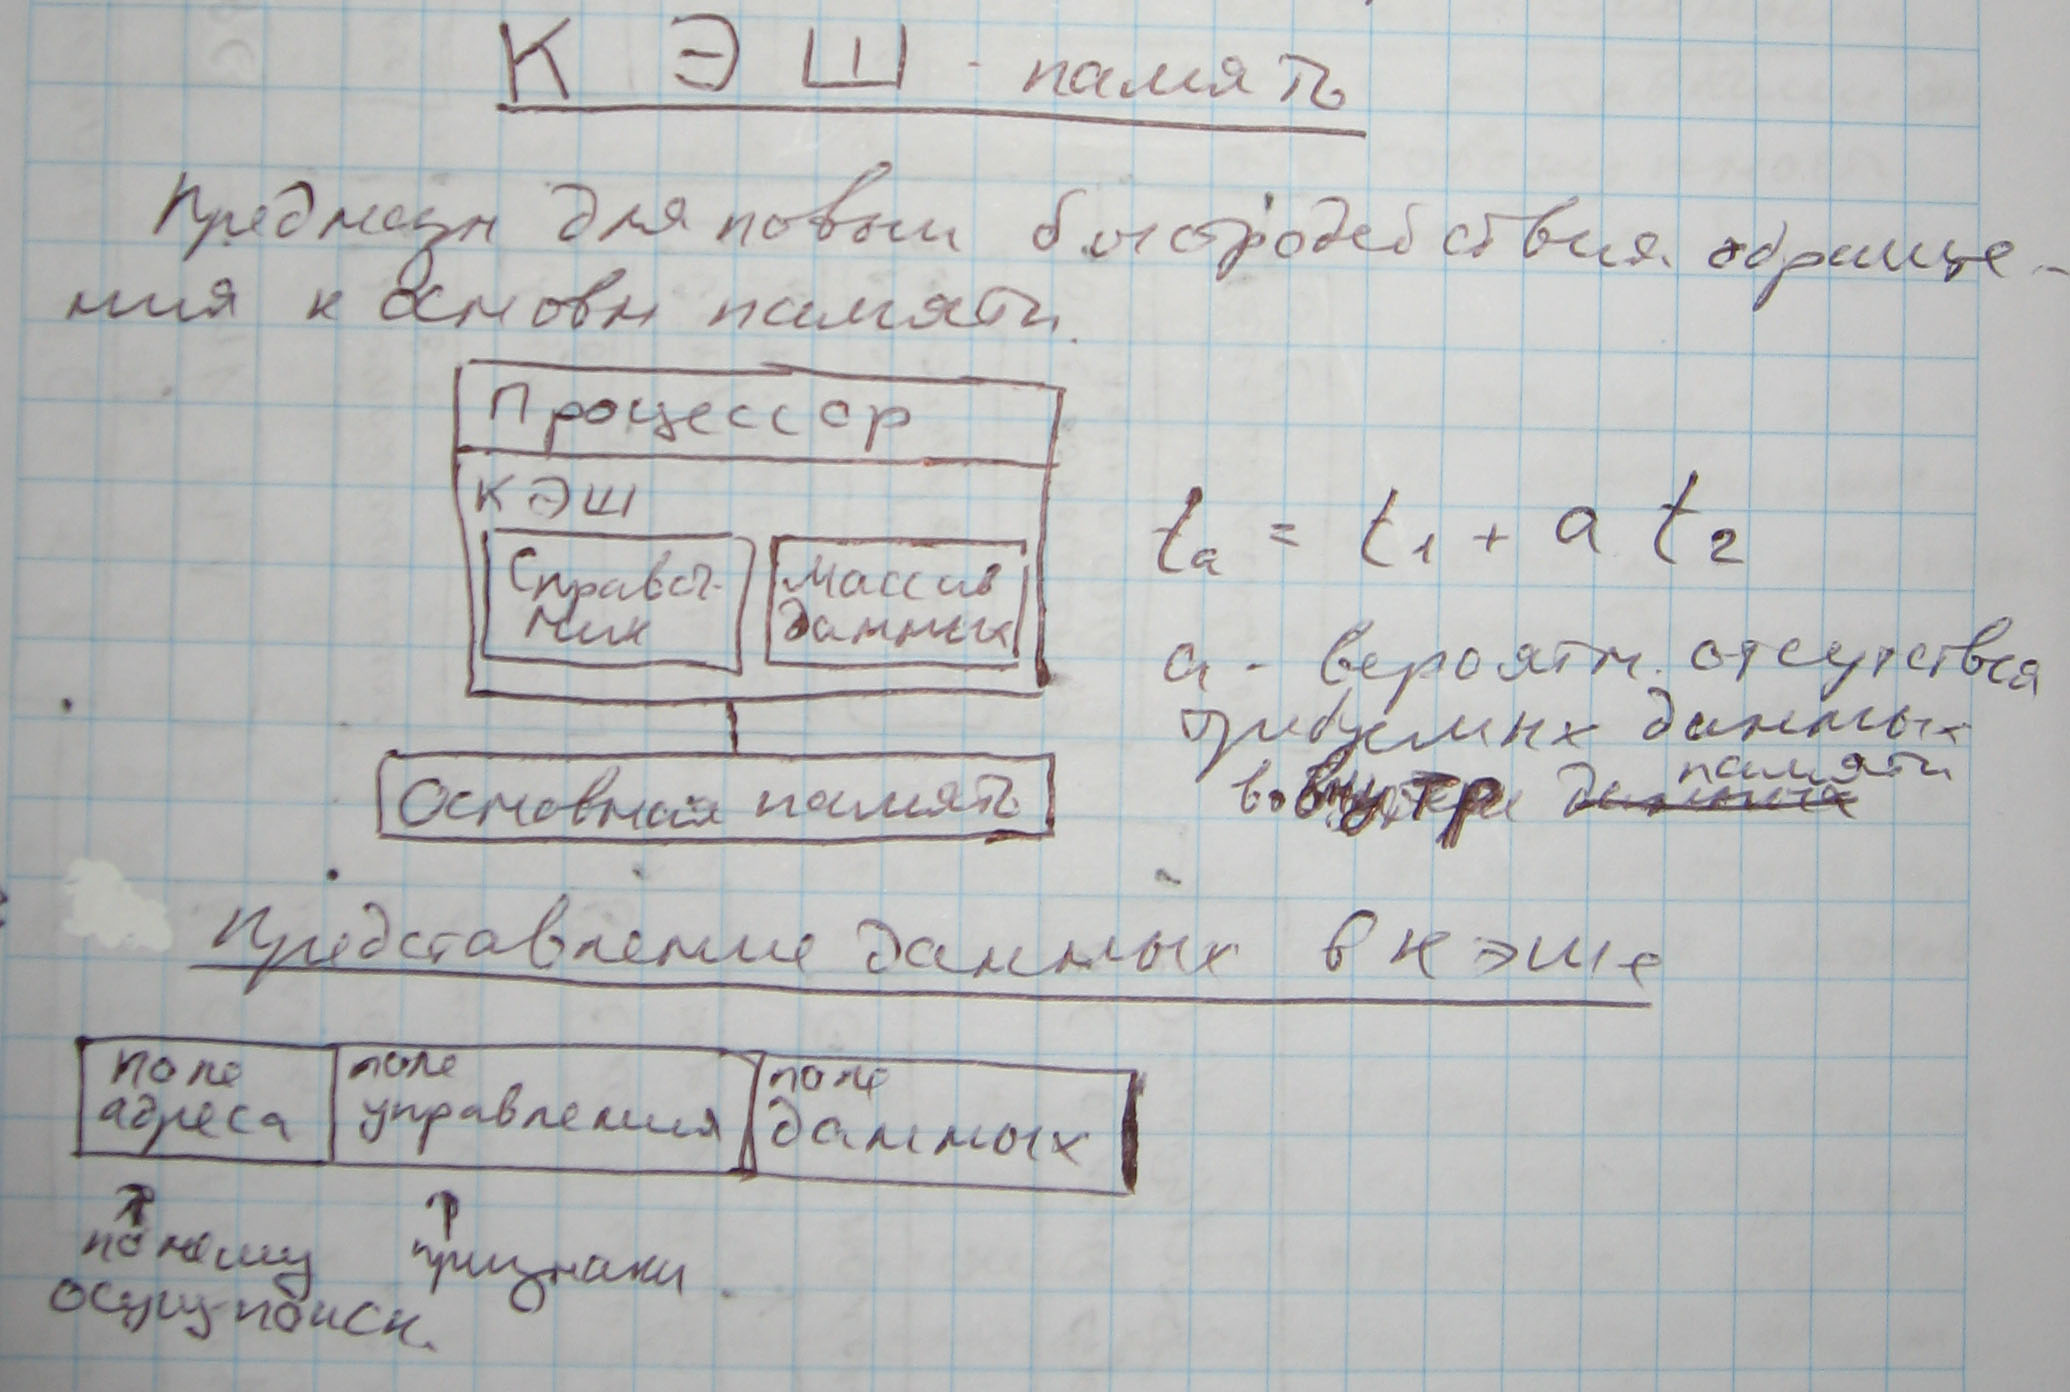 КЭШ - память
Предназн для повыш быстродействия обраще-
ния к основн памяти.
Процессор
КЭШ
Справоч-
ник
Массив
данных
Основная память
tₐ = t₁ + a t₂
a - вероятн. отсутствия
требуемых данных
в внутр памяти
Представление данных в кэше
поле
адреса
поле
управления
поле
данных
↑ ↑
по нему признаки
осущ поиск.